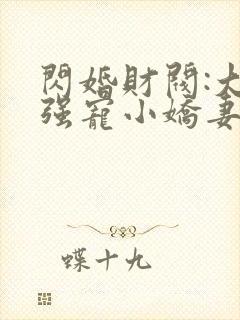 閃婚財閥:大
强寵小嬌妻
蝶十九